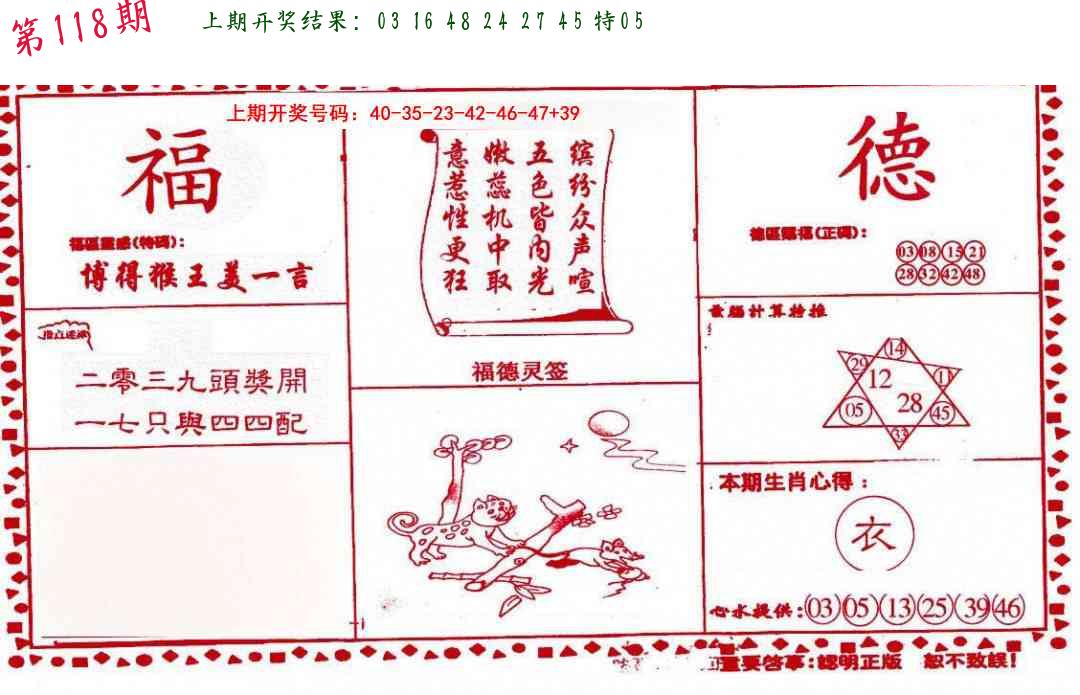 第118期
上期开奖结果: 03 16 48 24 27 45 特05
上期开奖号码：40-35-23-42-46-47+39
福
福區靈感(特碼):
博得猴王美一言
二零三九頭獎開
一七只與四四配
缤纷众声喧
五色皆内光
嫩蕊机中取
意惹性更狂
福德灵签
德
德區賜福(正碼):
03 08 15 21
28 32 42 48
電腦計算特推
14
29
11
12
28
05
45
33
本期生肖心得：
衣
心水提供:03 05 13 25 39 46
重要啓事:認明正版 恕不致誤!